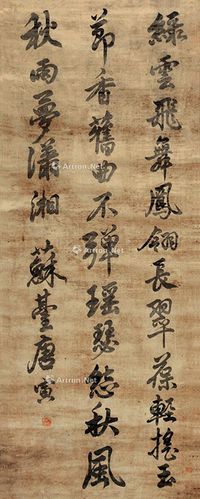 綠雲飛舞鳳翎長翠葆輕搖玉
節香舊曲不彈瑶瑟怨秋風
秋雨夢瀟湘 蘇臺唐寅
Artron.Net